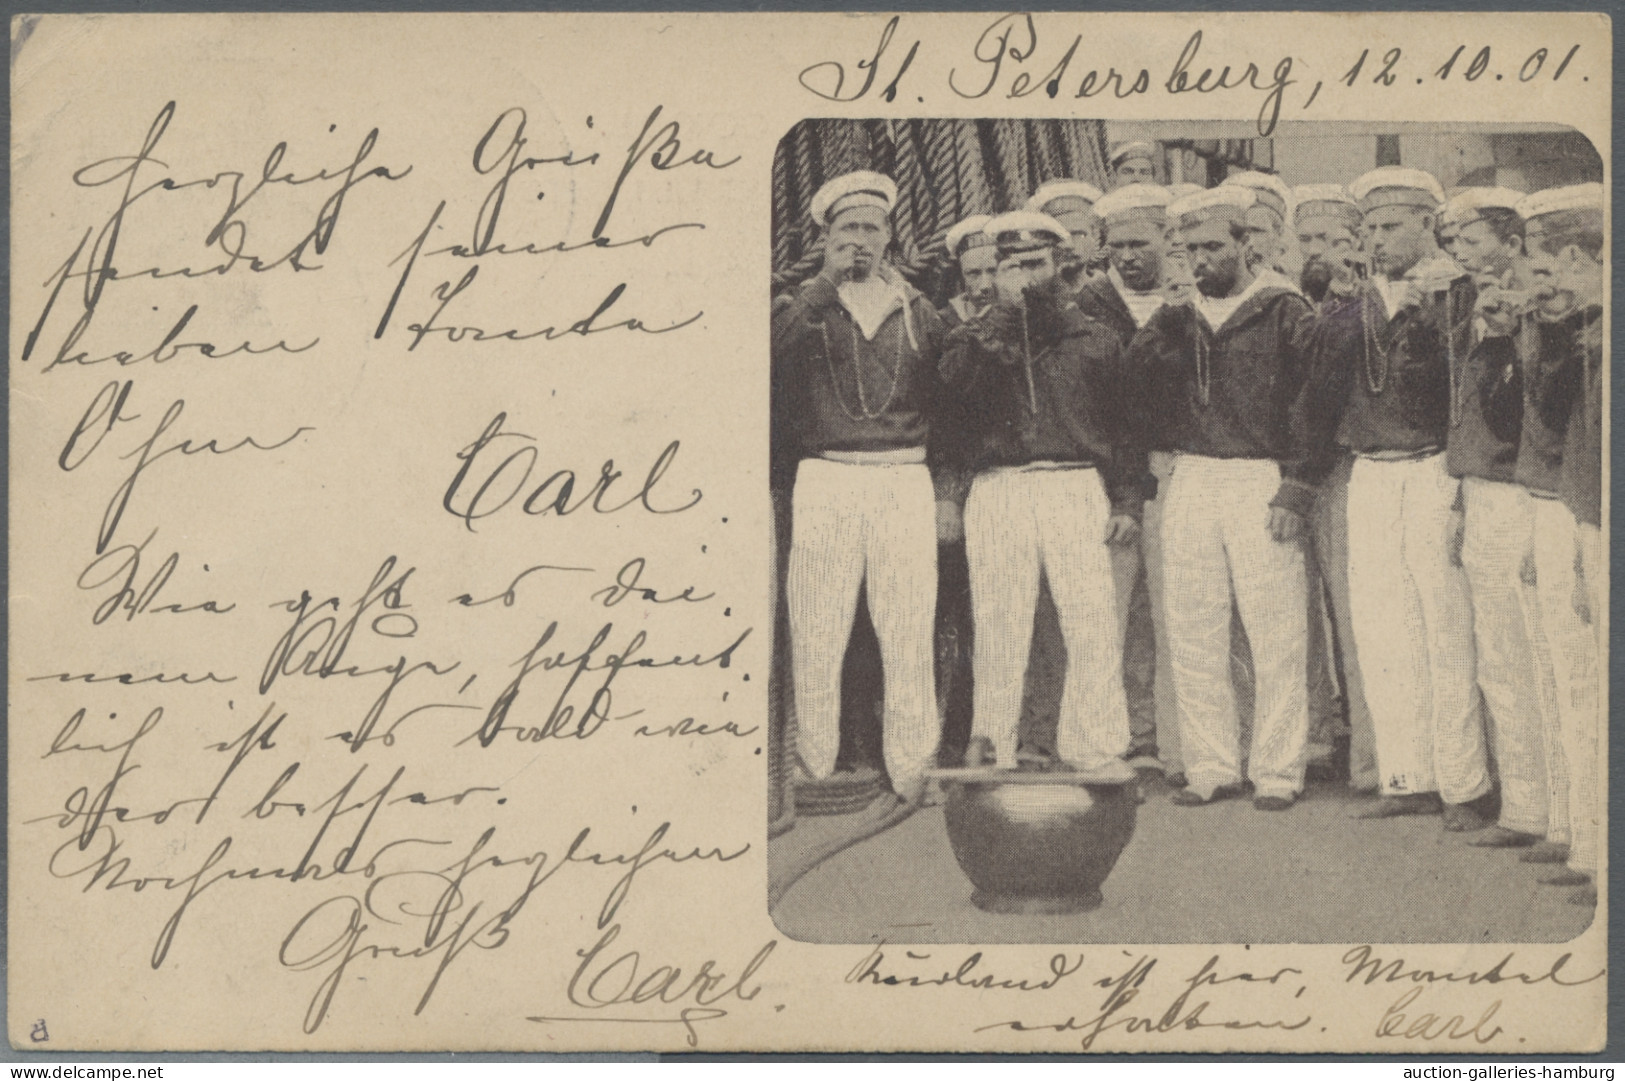 St. Petersburg, 12.10.01.
Herzliche Grüße
sendet seiner
lieben Tante
Carl.
Wie geht es Dei-
nem Auge, hoffent-
lich ist es bald wie-
der besser.
Nochmals herzlichen
Gruß
Carl.
Kurland ist hier, Mantel
erhalten. Carl.
delcampe.net
auction-galleries-hamburg